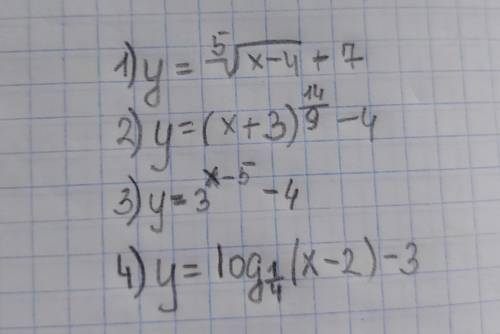 1) y = ⁵√(x-4) + 7
2) y = (x+3)^(14/9) - 4
3) y = 3^(x-5) - 4
4) y = log_(1/4) (x-2) - 3